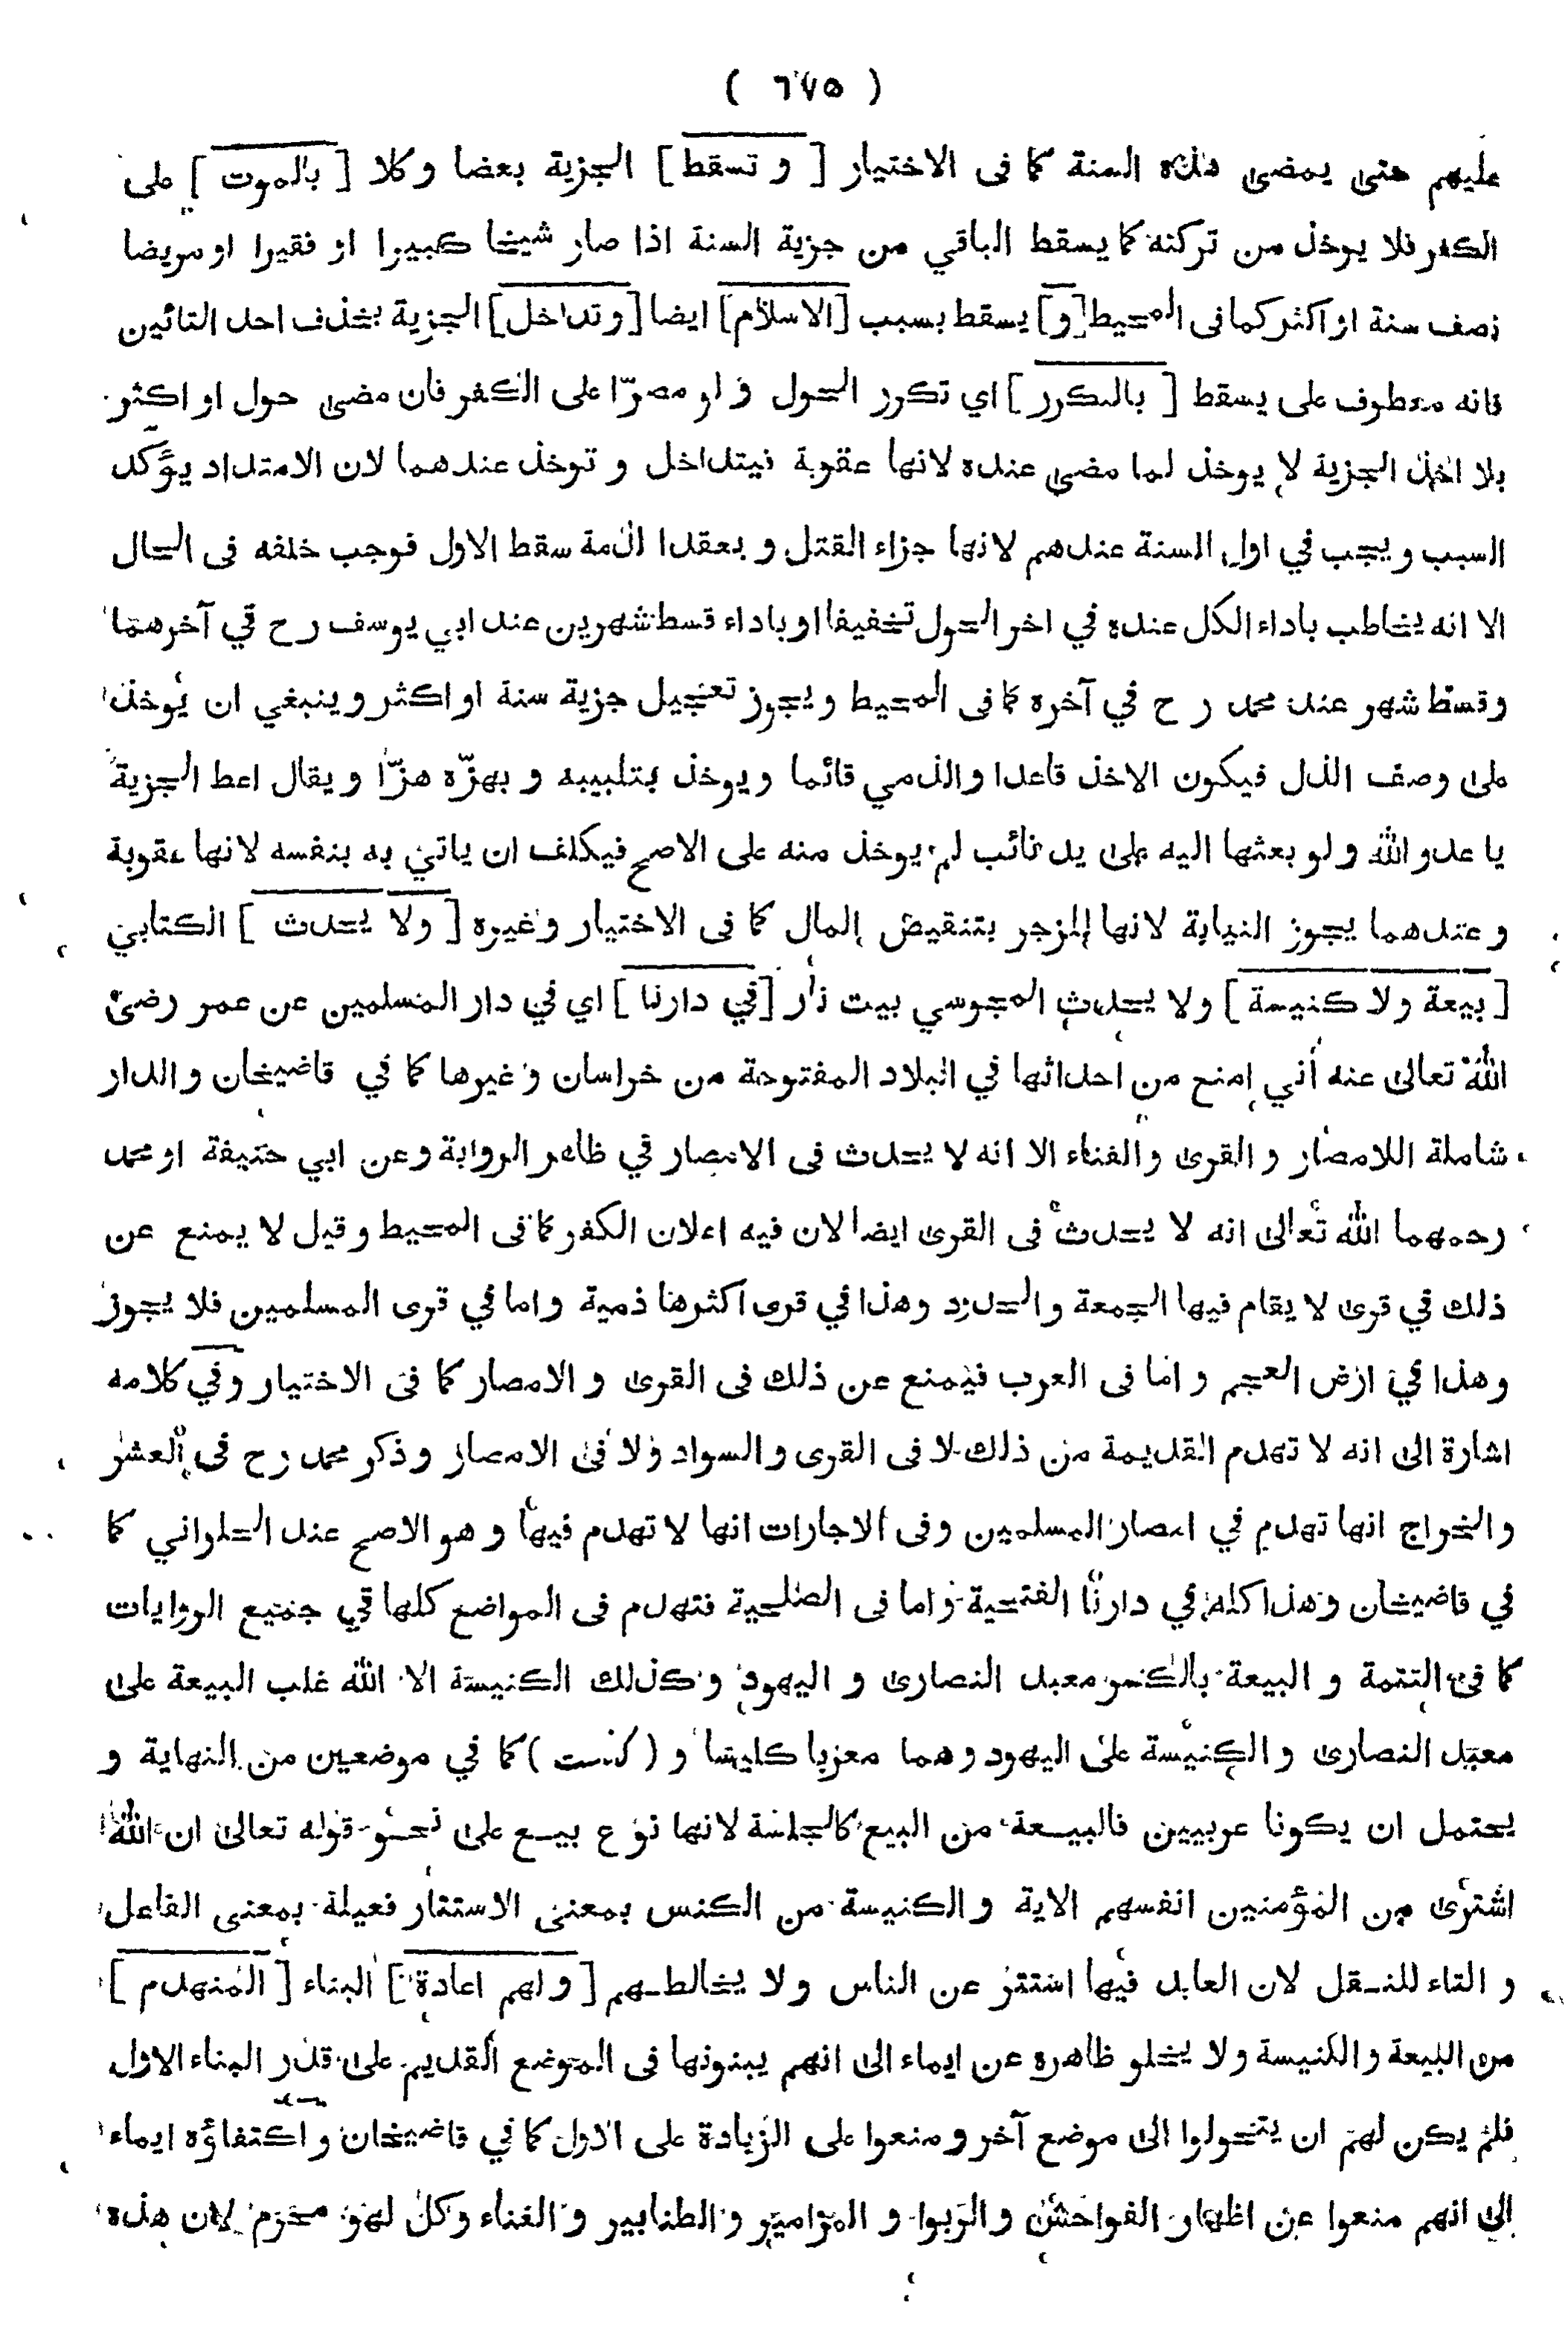 ( ٦٧٥ )
عليهم حتى يمضى هذه السنة كما فى الاختيار [ و تسقط ] الجزية بعضا وكلا [ بالموت ] على
الكفر فلا يوخذ من تركته كما يسقط الباقي من جزية السنة اذا صار شيخا كبيرا او فقيرا او مريضا
نصف سنة او اكثر كما فى المحيط [و] يسقط بسبب [الاسلام] ايضا [وتداخل] الجزية بحذف احد التائين
فانه معطوف على يسقط [ بالتكرر ] اي تكرر الحول و لو مصرّا على الكفر فان مضى حول او اكثر
بلا اخذ الجزية لا يوخذ لما مضى عنده لانها عقوبة فيتداخل و توخذ عندهما لان الامتداد يؤكد
السبب ويجب في اول السنة عندهم لانها جزاء القتل و بعقد الذمة سقط الاول فوجب خلفه فى الحال
الا انه يخاطب باداء الكل عنده في اخر الحول تخفيفا او باداء قسط شهرين عند ابي يوسف رح في آخرهما
وقسط شهر عند محمد ر ح في آخره كما فى المحيط ويجوز تعجيل جزية سنة او اكثر وينبغي ان يوخذ
على وصف الذل فيكون الاخذ قاعدا والذمي قائما ويوخذ بتلبيبه و يهزّه هزّا ويقال اعط الجزية
يا عدو الله ولو بعثها اليه على يد نائب لم يوخذ منه على الاصح فيكلف ان ياتي به بنفسه لانها عقوبة
وعندهما يجوز النيابة لانها للزجر بتنقيص المال كما فى الاختيار وغيره [ ولا يحدث ] الكتابي
[ بيعة ولا كنيسة ] ولا يحدث المجوسي بيت نار [في دارنا ] اي في دار المسلمين عن عمر رضى
الله تعالى عنه أني امنع من احداثها في البلاد المفتوحة من خراسان وغيرها كما في قاضيخان والدار
شاملة اللامصار و القرى والفناء الا انه لا يحدث فى الامصار في ظاهر الرواية وعن ابي حنيفة او محمد
رحمهما الله تعالى انه لا يحدث فى القرى ايضا لان فيه اعلان الكفر كما فى المحيط وقيل لا يمنع عن
ذلك في قرى لا يقام فيها الجمعة والحدود وهذا في قرى اكثرها ذمية واما في قرى المسلمين فلا يجوز
وهذا في ارض العجم و اما فى العرب فيمنع عن ذلك فى القرى و الامصار كما فى الاختيار وفي كلامه
اشارة الى انه لا تهدم القديمة من ذلك لا فى القرى والسواد ولا فى الامصار وذكر محمد رح فى العشر
والخراج انها تهدم في امصار المسلمين وفى الاجارات انها لا تهدم فيها وهو الاصح عند الحلواني كما
في قاضيخان وهذا كله في دارنا الفتحية واما فى الصلحية فتهدم فى المواضع كلها في جميع الروايات
كما فى التتمة و البيعة بالكسر معبد النصارى و اليهود وكذلك الكنيسة الا انه غلب البيعة على
معبد النصارى والكنيسة على اليهود وهما معربا كليسا و ( كنست ) كما في موضعين من النهاية و
يحتمل ان يكونا عربيين فالبيعة من البيع كالجلسة لانها نوع بيع على نحو قوله تعالى ان الله
اشترى من المؤمنين انفسهم الاية والكنيسة من الكنس بمعنى الاستتار فعيلة بمعنى الفاعل
و التاء للنقل لان العابد فيها استتر عن الناس ولا يخالطهم [ ولهم اعادة ] البناء [ المنهدم ]
من البيعة والكنيسة ولا يخلو ظاهره عن ايماء الى انهم يبنونها فى الموضع القديم على قدر البناء الاول
فلم يكن لهم ان يتحولوا الى موضع آخر ومنعوا على الزيادة على الاول كما في قاضيخان واكتفاؤه ايماء
الى انهم منعوا عن اظهار الفواحش والربوا و المزامير و الطنابير و الغناء وكل لهو محرم لان هذه